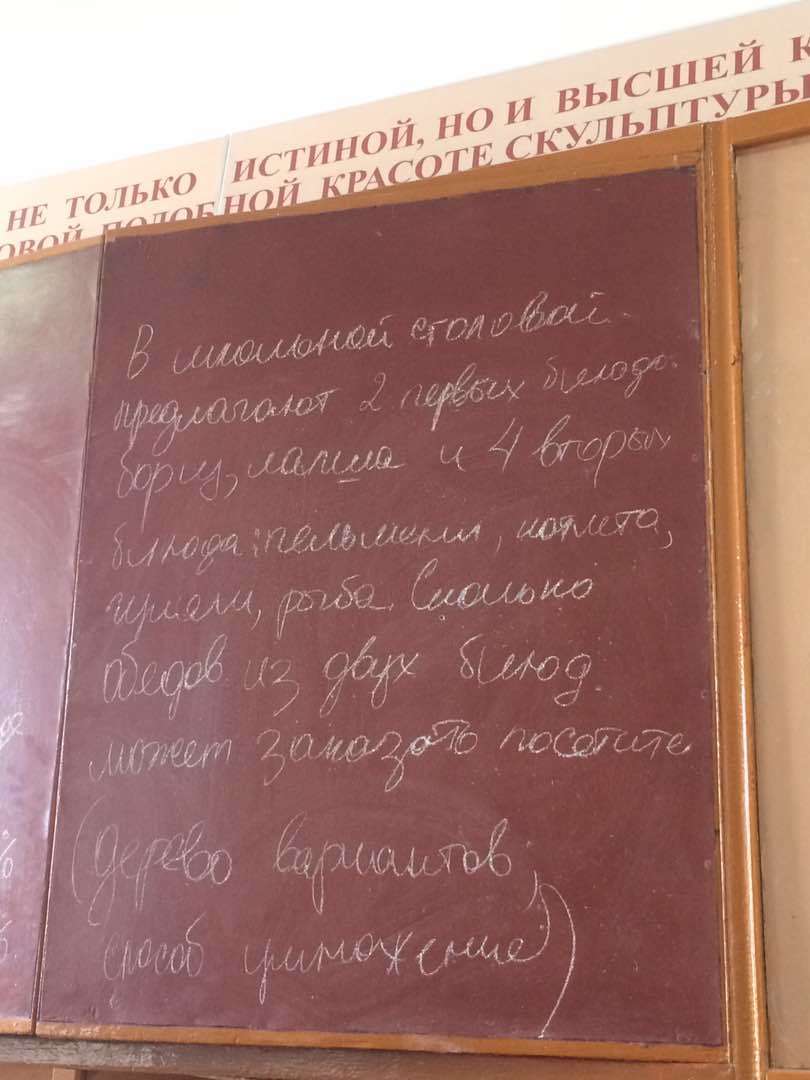 НЕ ТОЛЬКО ИСТИНОЙ, НО И ВЫСШЕЙ К
ОВОЙ ПОДОБНОЙ КРАСОТЕ СКУЛЬПТУРЫ
В школьной столовой
предлагают 2 первых блюда:
борщ, лапша и 4 вторых
блюда: пельмени, котлета,
гуляш, рыба. Сколько
обедов из двух блюд
может заказать посетите
(дерево вариантов,
способ умножение)
%
%